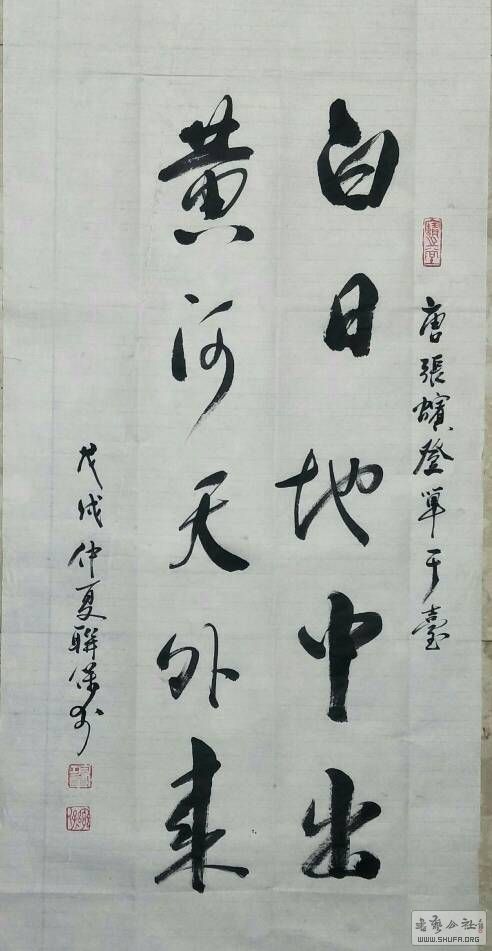 唐張蠙登單于臺
白日地中出
黃河天外來
戊戌仲夏聯保书
書藝公社
WWW.SHUFA.ORG